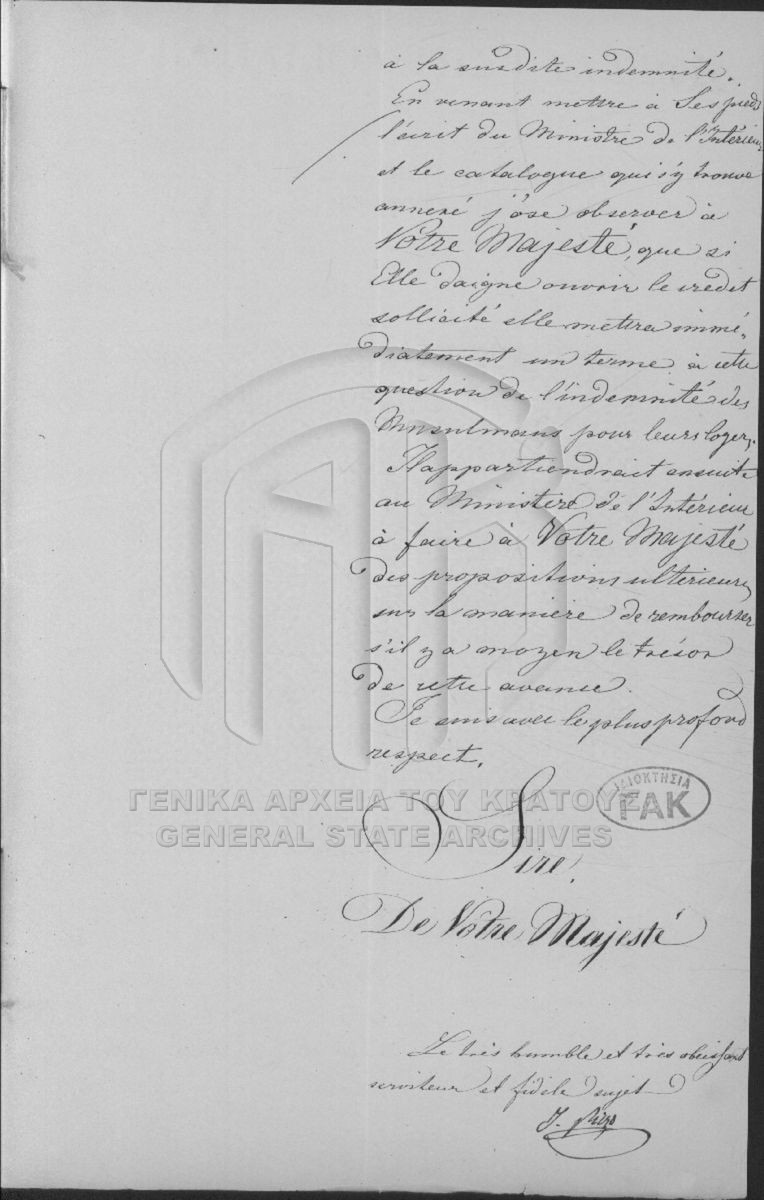 à la susdite indemnité.
En venant mettre à Ses pieds
l'écrit du Ministre de l'Intérieur
et le catalogue qui s'y trouve
annexé j'ose observer à
Votre Majesté, que si
Elle daigne ouvrir le crédit
sollicité elle mettra immé-
diatement un terme à cette
question de l'indemnité des
Musulmans pour leurs loyers.
Il appartiendrait ensuite
au Ministère de l'Intérieur
à faire à Votre Majesté
des propositions ultérieures
sur la manière de rembourser
s'il y a moyen le trésor
de cette avance.
Je suis avec le plus profond
respect.
ΙΔΙΟΚΤΗΣΙΑ
ΓΑΚ
ΓΕΝΙΚΑ ΑΡΧΕΙΑ ΤΟΥ ΚΡΑΤΟΥΣ
GENERAL STATE ARCHIVES
Sire,
De Votre Majesté
Le très humble et très obéissant
serviteur et fidèle sujet
J. Rizo